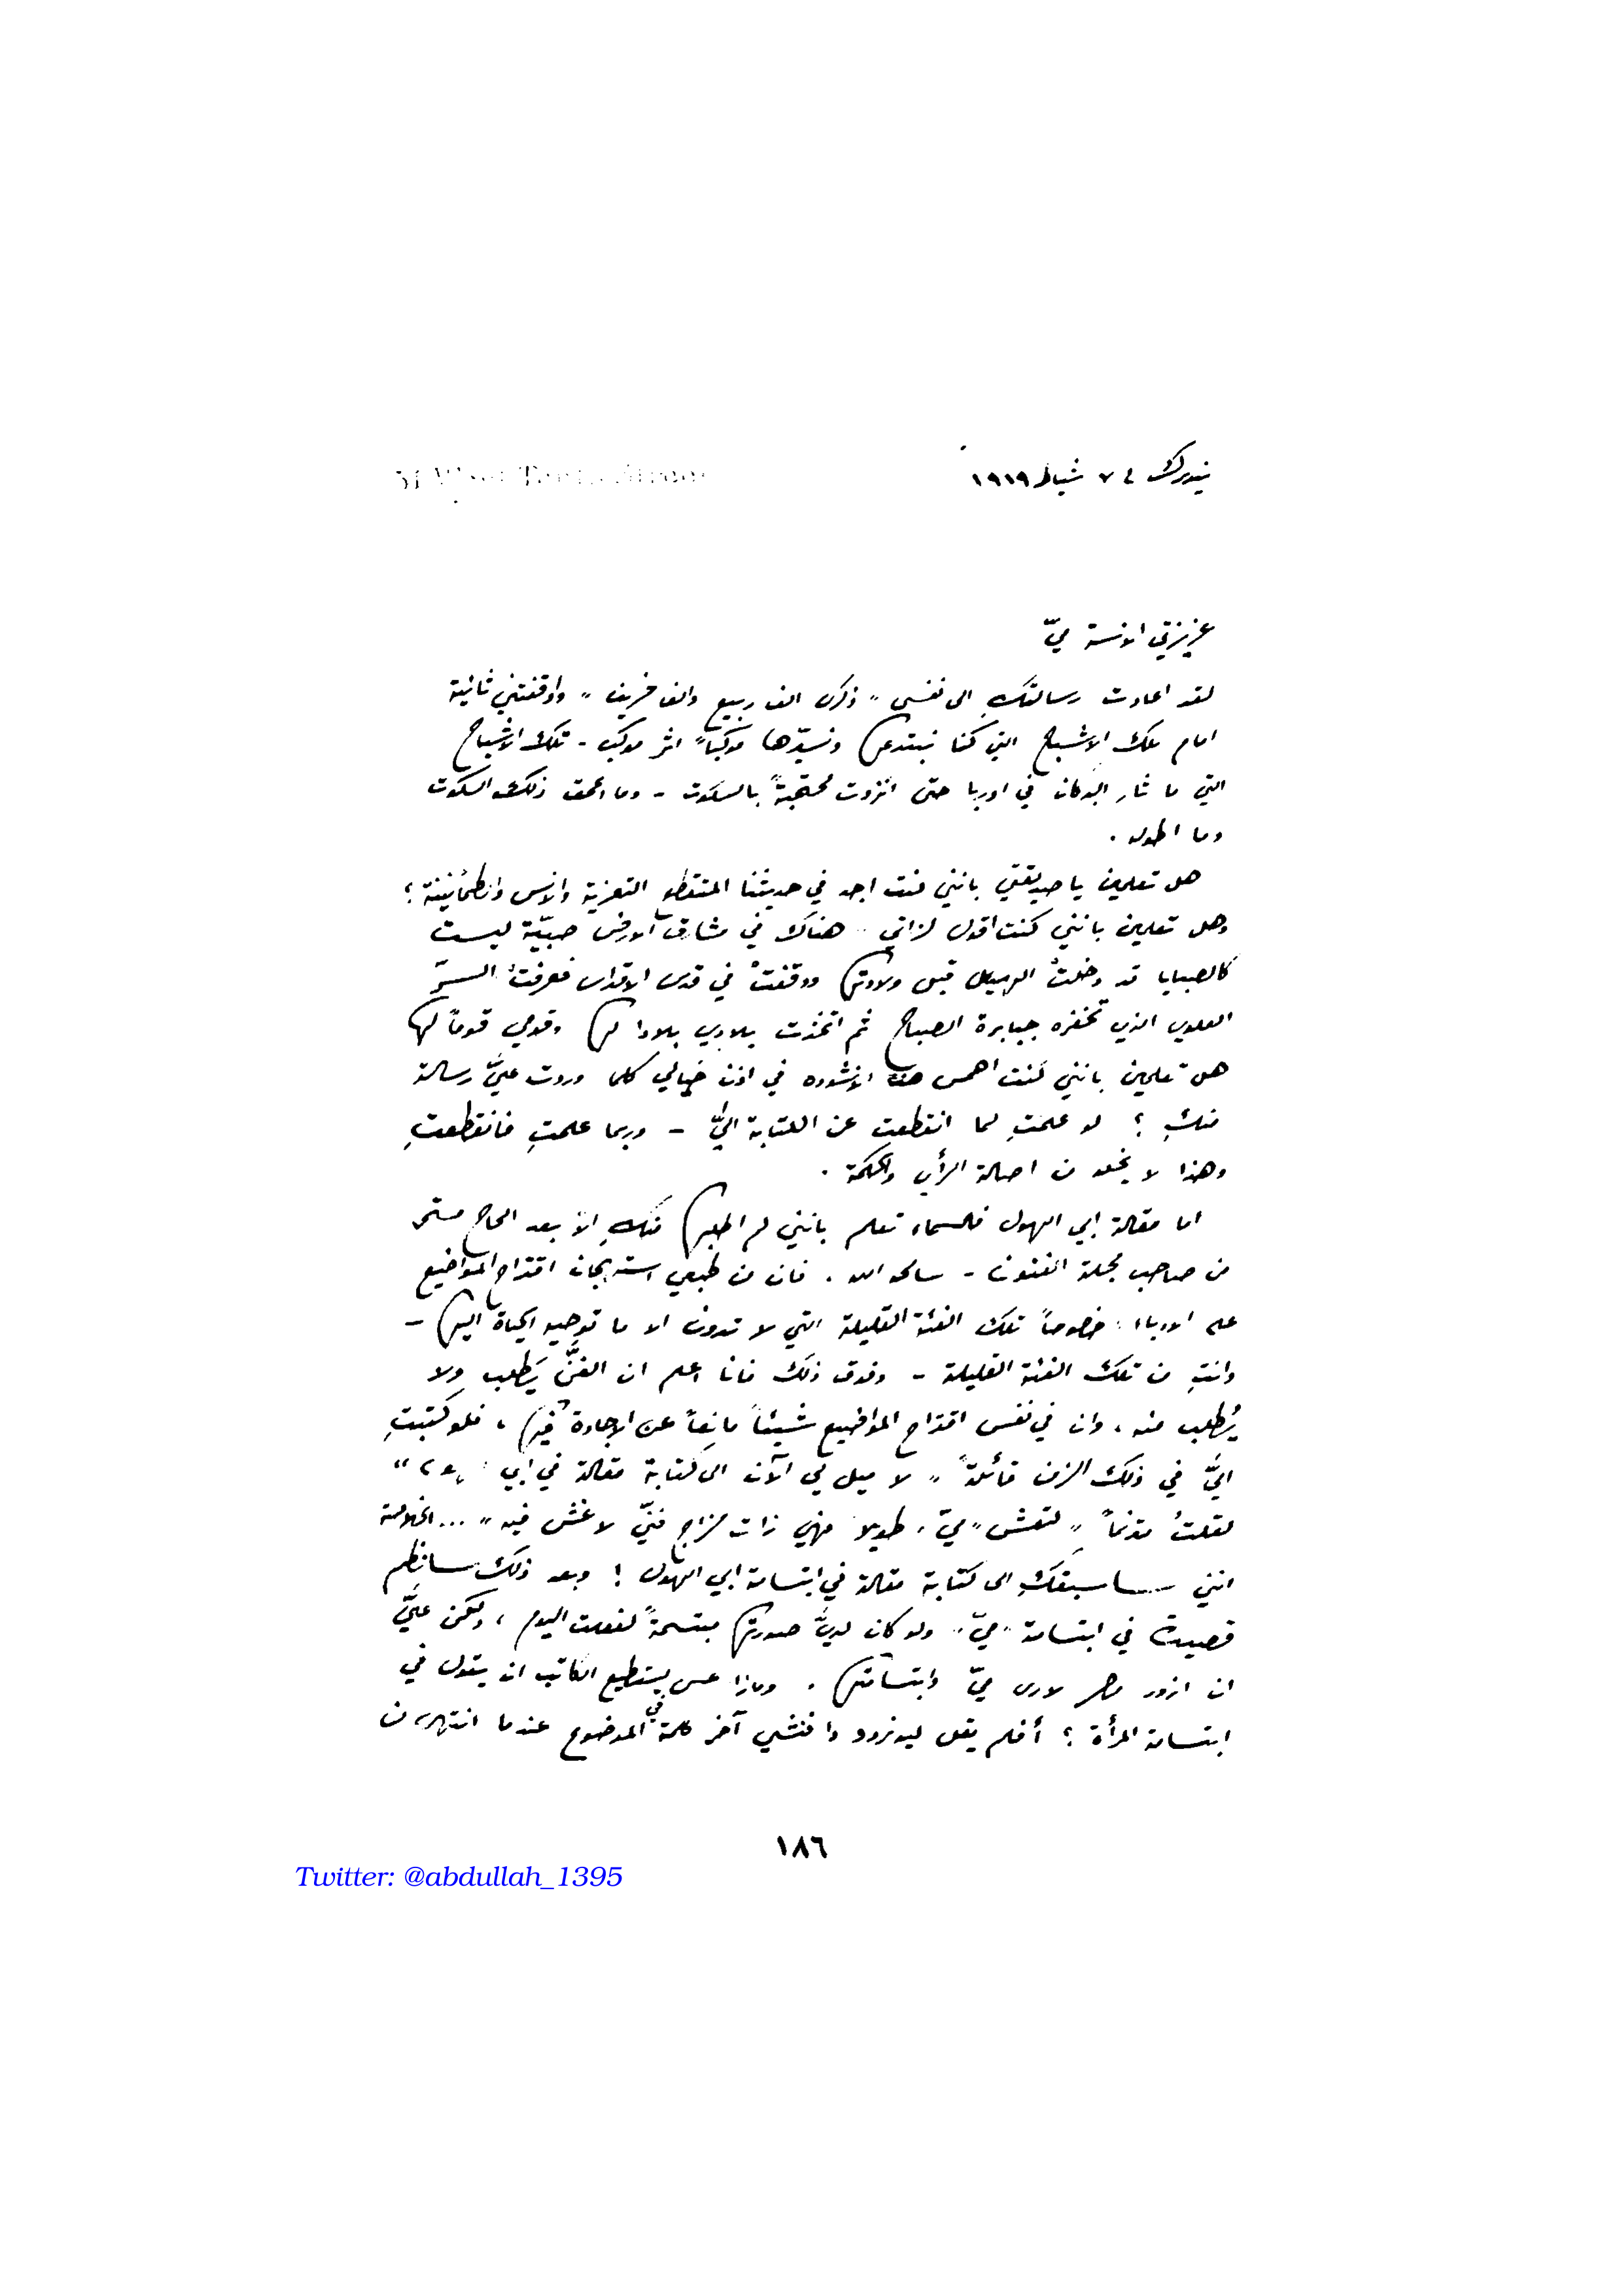 نيويورك في ٧ شباط ١٩١٩
عزيزتي الانسة ميّ
لقد اعادت رسالتكِ الى نفسي „ ذكرى الف ربيع والف خريف „ واوقفتني ثانية
امام تلك الاشباح التي كنا نبتدعها ونسيّرها موكباً اثر موكب - تلك الاشباح
التي ما ثار البركان في اوربا حتى انزوت محتجبةً بالسكوت - وما اعمق ذلك السكوت
وما اطوله .
هل تعلمين يا صديقتي بانني كنت اجد في حديثنا المتقطع التعزية والانس والطمأنينة ؟
وهل تعلمين بانني كنت اقول لذاتي هناك في مشارق الارض صبيّة ليست
كالصبايا قد دخلتْ الهيكل قبل ولادتها ووقفتْ في قدس الاقداس فعرفتْ السرّ
العلوي الذي تخفره جبابرة الصباح ثم اتخذت بلادي بلادا لها وقومي قوماً لها
هل تعلمين بانني كنت اهمس هذه الانشودة في اذن خيالي كلما وردت عليَّ رسالة
منكِ ؟ لو علمتِ لما انقطعت عن الكتابة اليَّ - وربما علمتِ فانقطعتِ
وهذا لا يخلو من اصالة الرأي والحكمة .
اما مقالة ابي الهول فالسماء تعلم بانني لم اطلبها منكِ الاّ بعد الحاح مستمر
من صاحب مجلة الفنون - سامحه الله . فان من طبعي استهجان اقتراح المواضيع
على الادباء خصوصاً تلك الفئة القليلة التي لا تدون الا ما توحيه الحياة اليها -
وانتِ من تلك الفئة القليلة - وفوق ذلك فانا اعلم ان الفنَّ يَطلب ولا
يُطلب منه ، وان في نفس اقتراح المواضيع شيئاً مانعاً عن الاجادة فيها ، فلو كتبتِ
اليَّ في ذلك الزمن قائلةً „ لا ميل بي الآن الى كتابة مقالة في ابي الهول “
لقلتُ مترنماً „ لتعش „ ميّ „ طويلا فهي ذات مزاج فنيّ لا غش فيه „ ... الخلاصة
انني ساسبقكِ الى كتابة مقالة في ابتسامة ابي الهول ! وبعد ذلك سانظم
قصيدة في ابتسامة „ ميّ „ ولو كان لديَّ صورتها مبتسمةً لفعلت اليوم ، ولكن عليَّ
ان ازور مصر لارى ميّ وابتسامتها . وماذا عسى يستطيع الكاتب ان يقول في
ابتسامة المرأة ؟ أفلم يقل ليونردو دا فنشي آخر كلمة في الموضوع عندما انتهى من
١٨٦
Twitter: @abdullah_1395